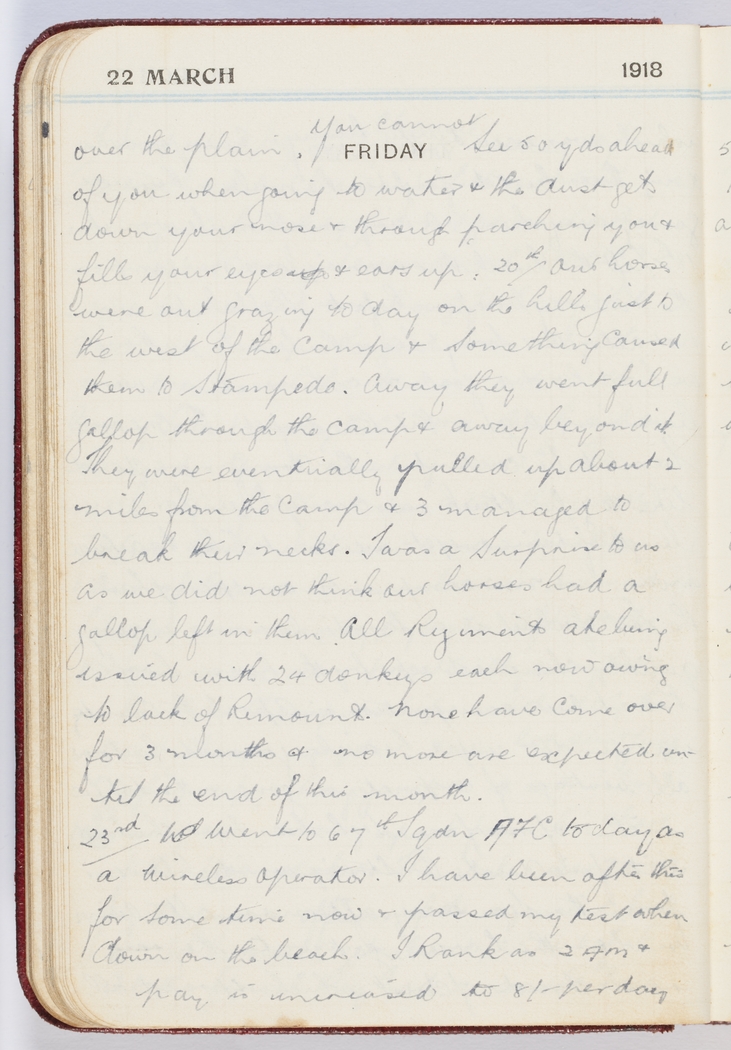 22 MARCH 1918
You cannot
over the plain. FRIDAY See 50 yds ahead
of you when going to water & the dust gets
down your nose & through parching you &
fills your eyes & ears up. 20th/ our horses
were out grazing to day on the hills just to
the west of the Camp & Something Caused
them to Stampede. Away they went full
gallop through the Camp & away beyond it.
They were eventually pulled up about 2
miles from the Camp & 3 managed to
break their necks. I was a Surprise to us
as we did not think our horses had a
gallop left in them. All Regiments are being
issued with 24 donkeys each now owing
to lack of Remounts. None have Come over
for 3 months & no more are expected un-
til the end of this month.
23rd Went to 67th Sqdn AFC to day as
a Wireless Operator. I have been after this
for Some time now & passed my test when
down on the beach. I Rank as 2 AM &
pay is increased to 8/- per day